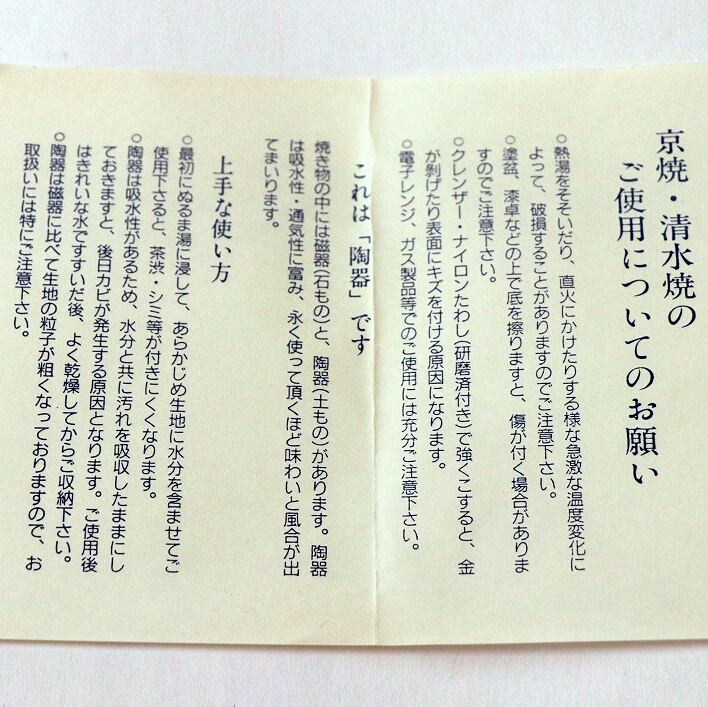 京焼・清水焼の
ご使用についてのお願い
○熱湯をそそいだり、直火にかけたりする様な急激な温度変化に
よって、破損することがありますのでご注意下さい。
○塗盆、漆卓などの上で底を擦りますと、傷が付く場合がありま
すのでご注意下さい。
○クレンザー・ナイロンたわし(研磨済付き)で強くこすると、金
が剝げたり表面にキズを付ける原因になります。
○電子レンジ、ガス製品等でのご使用には充分ご注意下さい。
これは「陶器」です
焼き物の中には磁器(石もの)と、陶器(土もの)があります。陶器
は吸水性・通気性に富み、永く使って頂くほど味わいと風合が出
てまいります。
上手な使い方
○最初にぬるま湯に浸して、あらかじめ生地に水分を含ませてご
使用下さると、茶渋・シミ等が付きにくくなります。
○陶器は吸水性があるため、水分と共に汚れを吸収したままにし
ておきますと、後日カビが発生する原因となります。ご使用後
はきれいな水ですすいだ後、よく乾燥してからご収納下さい。
○陶器は磁器に比べて生地の粒子が粗くなっておりますので、お
取扱いには特にご注意下さい。